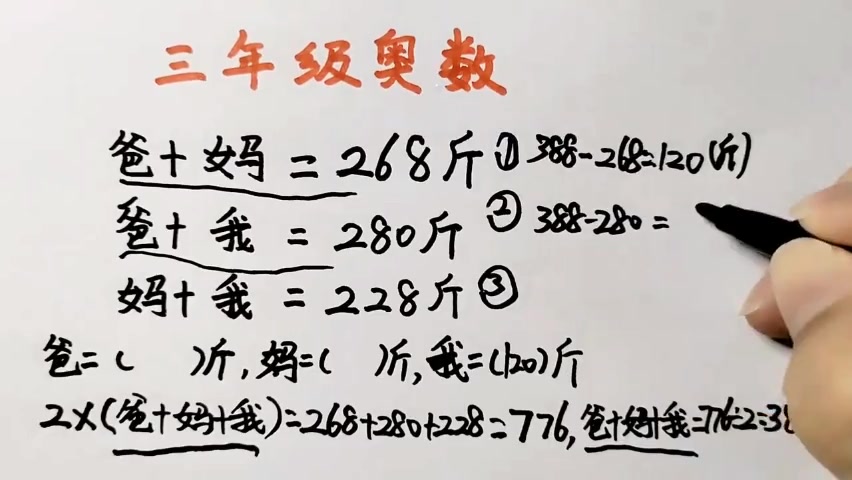 三年级奥数
爸+妈=268斤 ① 388-268=120(斤)
爸+我=280斤 ② 388-280=
妈+我=228斤 ③
爸=( )斤,妈=( )斤,我=(120)斤
2×(爸+妈+我)=268+280+228=776,爸+妈+我=776÷2=38